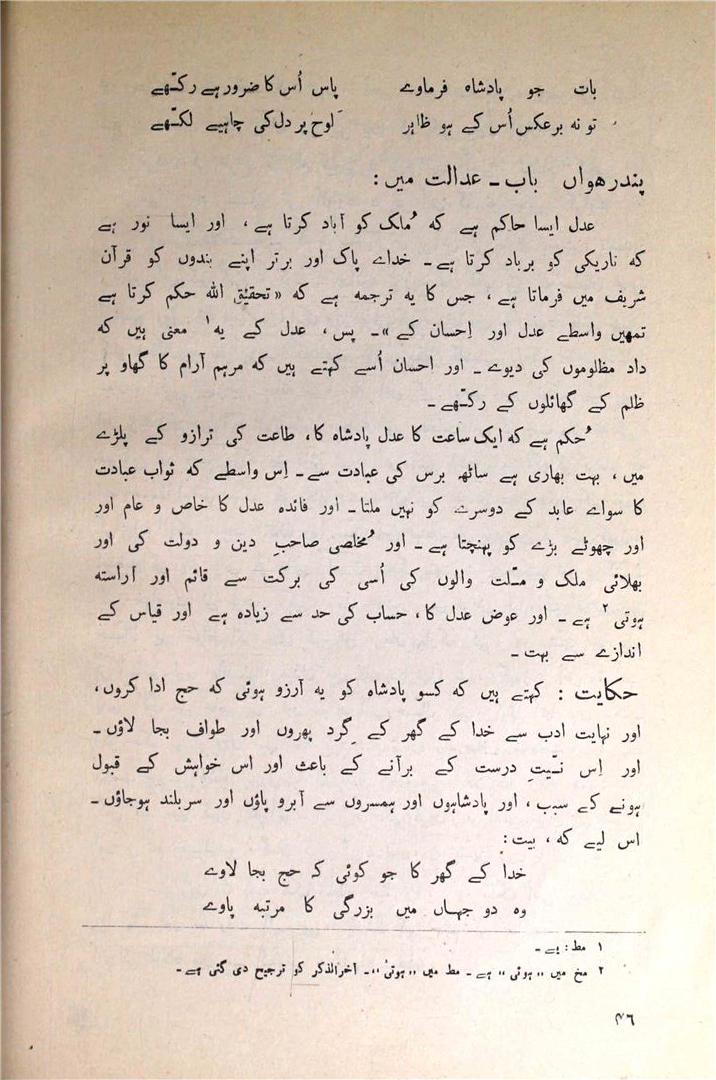 بات جو پادشاہ فرماوے پاس اُس کا ضرور ہے رکھّے
تو نہ برعکس اُس کے ہو ظاہر لوح پر دل کی چاہیے لکھّے
پندرھواں باب ــ عدالت میں :
عدل ایسا حاکم ہے کہ مُلک کو آباد کرتا ہے ، اور ایسا نور ہے
کہ تاریکی کو برباد کرتا ہے ۔ خداے پاک اور برتر اپنے بندوں کو قرآن
شریف میں فرماتا ہے ، جس کا یہ ترجمہ ہے کہ «تحقیق اللہ حکم کرتا ہے
تمھیں واسطے عدل اور اِحسان کے» ۔ پس ، عدل کے یہ ۱ معنی ہیں کہ
داد مظلوموں کی دیوے ۔ اور احسان اُسے کہتے ہیں کہ مرہم آرام کا گھاو پر
ظلم کے گھائلوں کے رکھّے ۔
حُکم ہے کہ ایک ساعت کا عدل پادشاہ کا ، طاعت کی ترازو کے پلڑے
میں ، بہت بھاری ہے ساٹھ برس کی عبادت سے ۔ اِس واسطے کہ ثواب عبادت
کا سواے عابد کے دوسرے کو نہیں ملتا ۔ اور فائدہ عدل کا خاص و عام اور
اور چھوٹے بڑے کو پہنچتا ہے ۔ اور مُخلصی صاحبِ دین و دولت کی اور
بھلائی ملک و ملّت والوں کی اُسی کی برکت سے قائم اور آراستہ
ہوتی ۲ ہے ۔ اور عوض عدل کا ، حساب کی حد سے زیادہ ہے اور قیاس کے
اندازے سے بہت ۔
حکایت : کہتے ہیں کہ کسو پادشاہ کو یہ آرزو ہوئی کہ حج ادا کروں ،
اور نہایت ادب سے خدا کے گھر کے گِرد پھروں اور طواف بجا لاؤں ۔
اور اِس نیّتِ درست کے برآنے کے باعث اور اس خواہش کے قبول
ہونے کے سبب ، اور پادشاہوں اور ہمسروں سے آبرو پاؤں اور سربلند ہوجاؤں ۔
اس لیے کہ ، بیت :
خدا کے گھر کا جو کوئی کہ حج بجا لاوے
وہ دو جہاں میں بزرگی کا مرتبہ پاوے
۱ مط : یے ۔
۲ مخ میں ,,ہوئی،، ہے ۔ مط میں ,,ہوتی،، ۔ آخرالذکر کو ترجیح دی گئی ہے ۔
۴٦